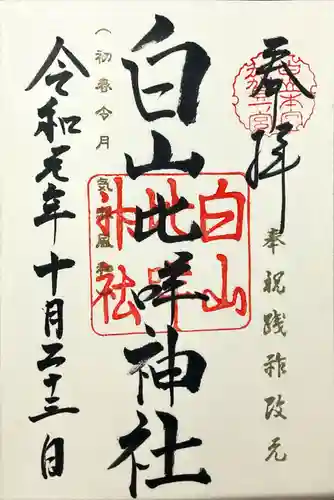 奉拝
奉祝践祚改元
白山比咩神社
白山比咩神社
(初春令月 気淑風和)
令和元年十月二十三日